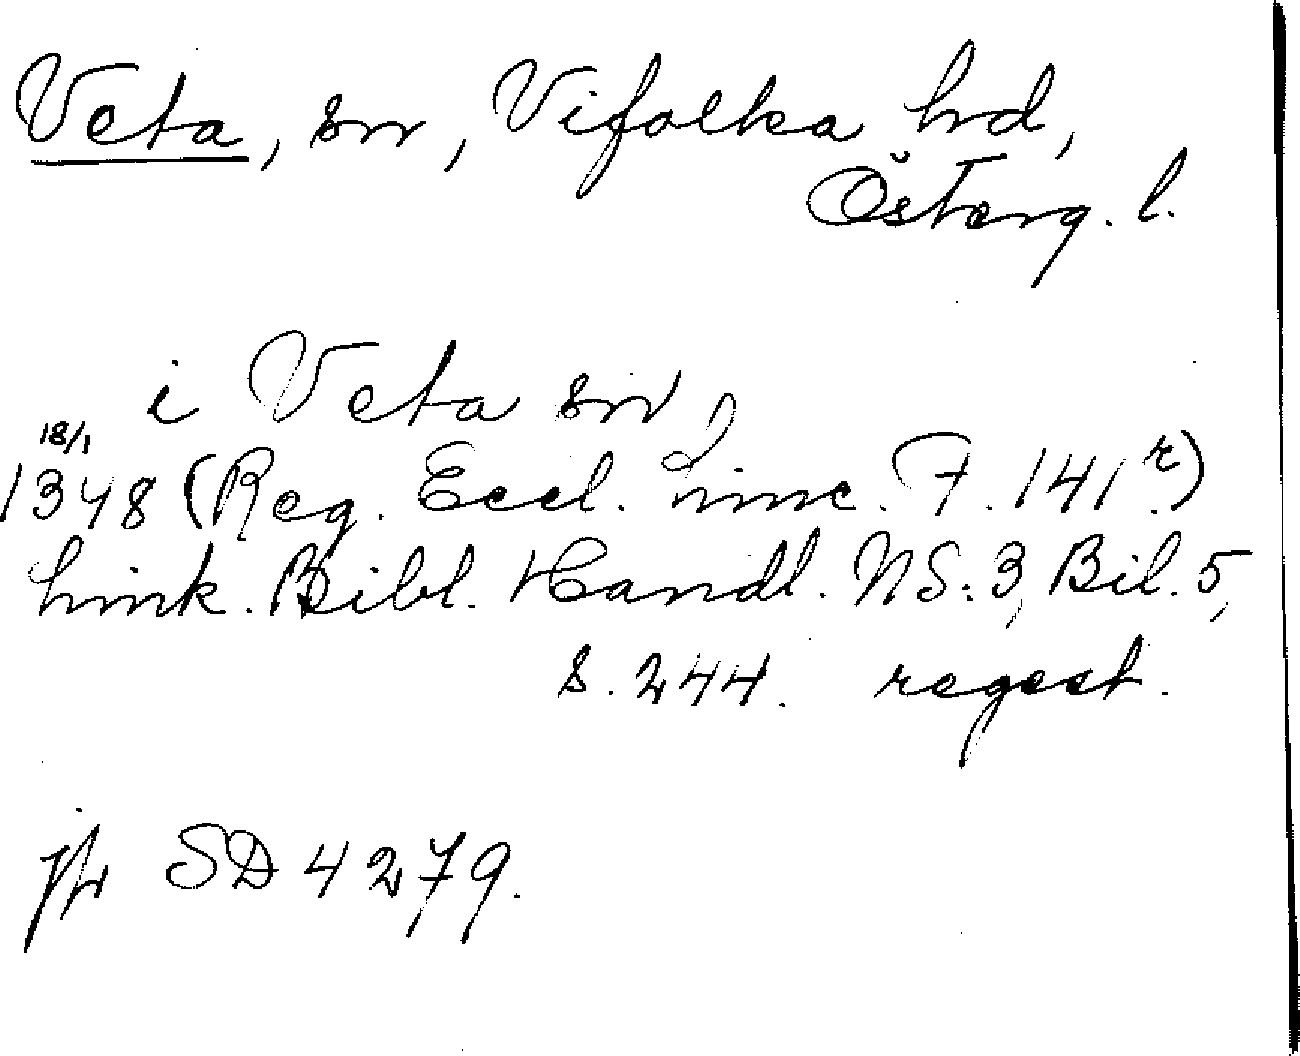 Veta, sn, Vifolka hd,
Österg. l.
i Veta sn,
18/1
1348 (Reg. Eccl. Linc. F. 141 r.)
Link. Bibl. Handl. NS: 3, Bil. 5,
s. 244. regest.
jfr SD 4279.